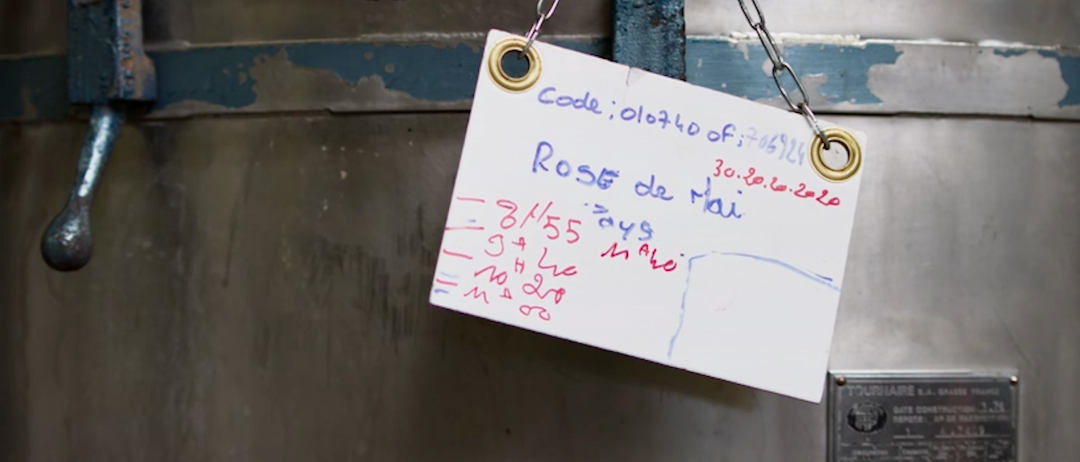 Code: 010740 of: 706924
30.20.6.2020
ROSE de Mai
Pays
- 8H55
- 9H40 11H40
- 10H20
= 11H00
TOURNAIRE S.A. GRASSE FRANCE
DATE CONSTRUCTION